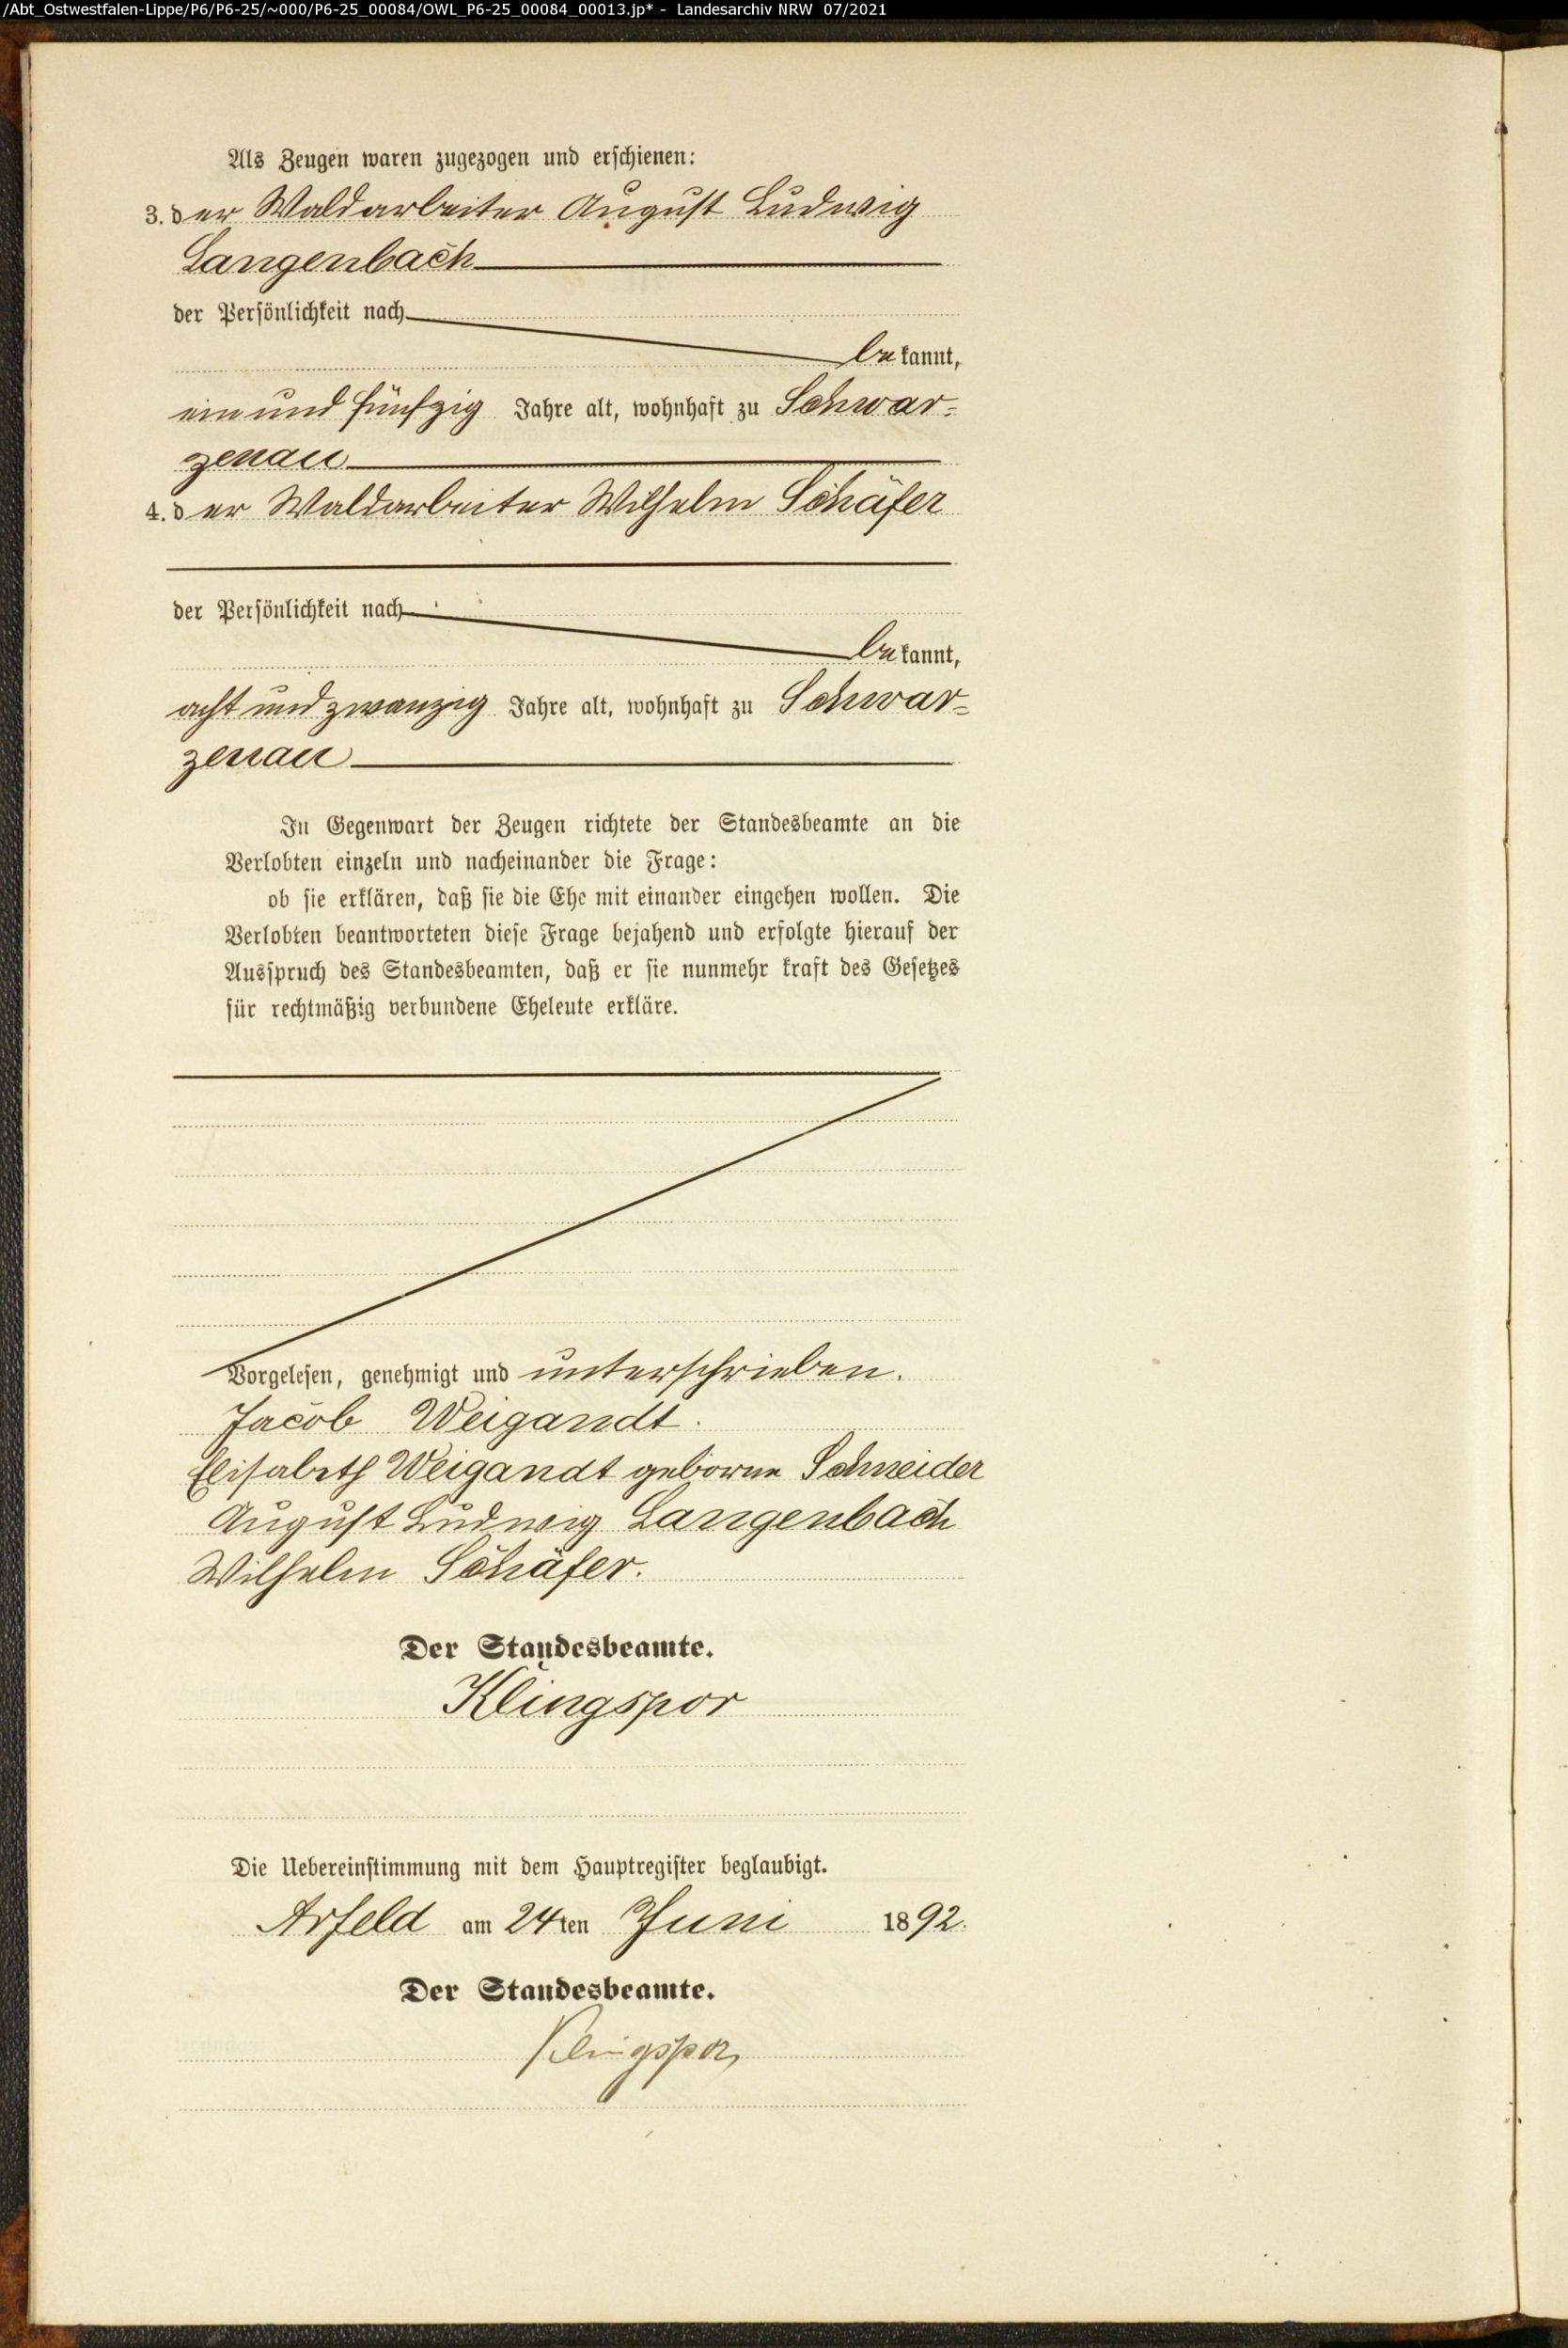 /Abt_Ostwestfalen-Lippe/P6/P6-25/~000/P6-25_00084/OWL_P6-25_00084_00013.jp* - Landesarchiv NRW 07/2021
Als Zeugen waren zugezogen und erschienen:
3. der Waldarbeiter August Ludwig
Langenbach
der Persönlichkeit nach
bekannt,
ein und fünfzig Jahre alt, wohnhaft zu Schwar-
zenau
4. der Waldarbeiter Wilhelm Schäfer
der Persönlichkeit nach
bekannt,
acht und zwanzig Jahre alt, wohnhaft zu Schwar-
zenau
In Gegenwart der Zeugen richtete der Standesbeamte an die
Verlobten einzeln und nacheinander die Frage:
ob sie erklären, daß sie die Ehe mit einander eingehen wollen. Die
Verlobten beantworteten diese Frage bejahend und erfolgte hierauf der
Ausspruch des Standesbeamten, daß er sie nunmehr kraft des Gesetzes
für rechtmäßig verbundene Eheleute erkläre.
Vorgelesen, genehmigt und unterschrieben.
Jacob Weigandt.
Elisabeth Weigandt geborne Schneider
August Ludwig Langenbach
Wilhelm Schäfer.
Der Standesbeamte.
Klingspor
Die Uebereinstimmung mit dem Hauptregister beglaubigt.
Arfeld am 24ten Juni 1892.
Der Standesbeamte.
Klingspor